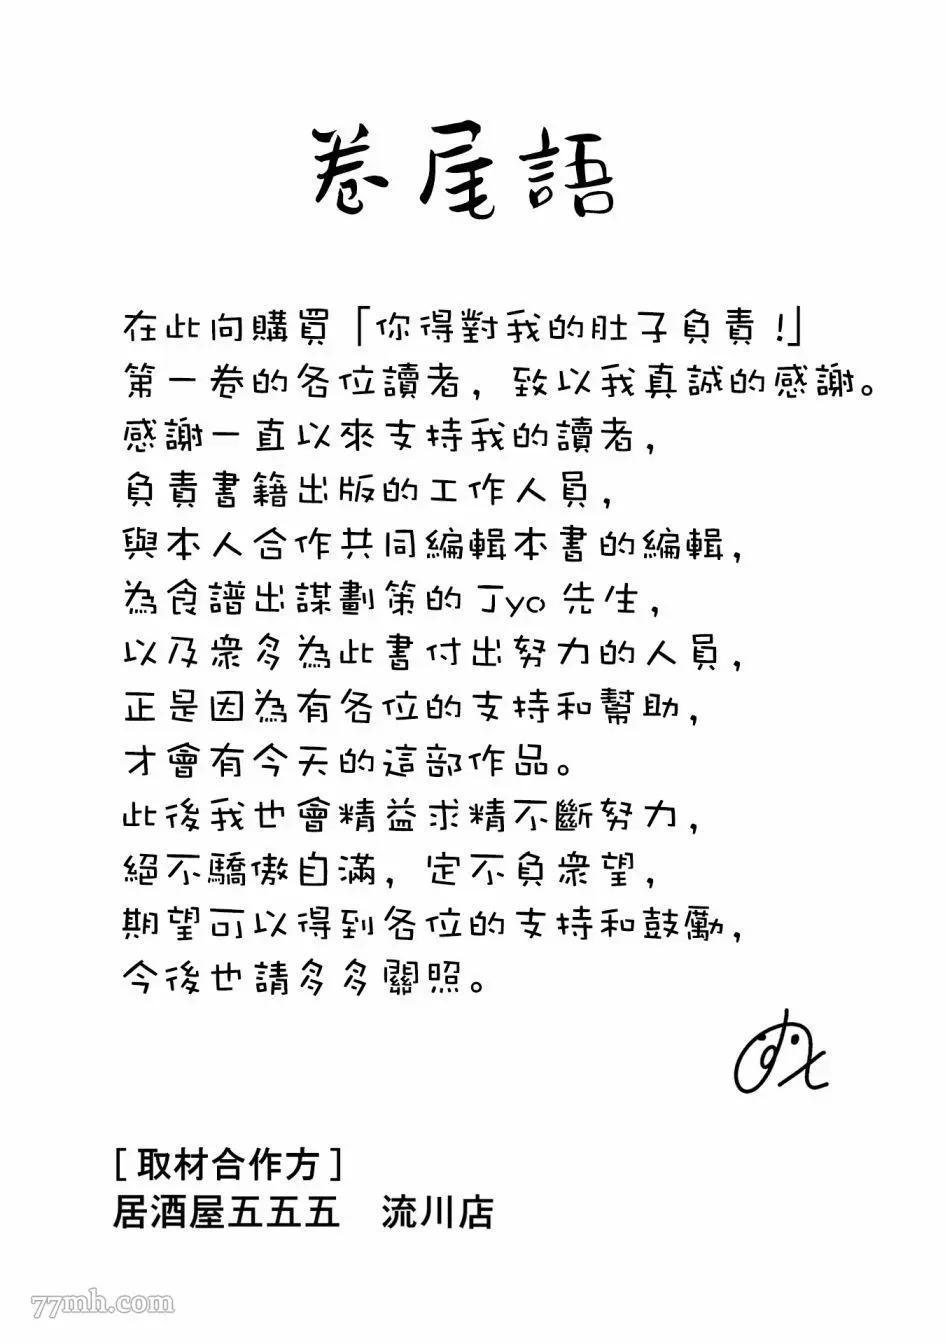 卷尾語
在此向購買「你得對我的肚子負責！」
第一卷的各位讀者，致以我真誠的感謝。
感謝一直以來支持我的讀者，
負責書籍出版的工作人員，
與本人合作共同編輯本書的編輯，
為食譜出謀劃策的Jyo先生，
以及眾多為此書付出努力的人員，
正是因為有各位的支持和幫助，
才會有今天的這部作品。
此後我也會精益求精不斷努力，
絕不驕傲自滿，定不負眾望，
期望可以得到各位的支持和鼓勵，
今後也請多多關照。
［取材合作方］
居酒屋五五五　流川店
77mh.com